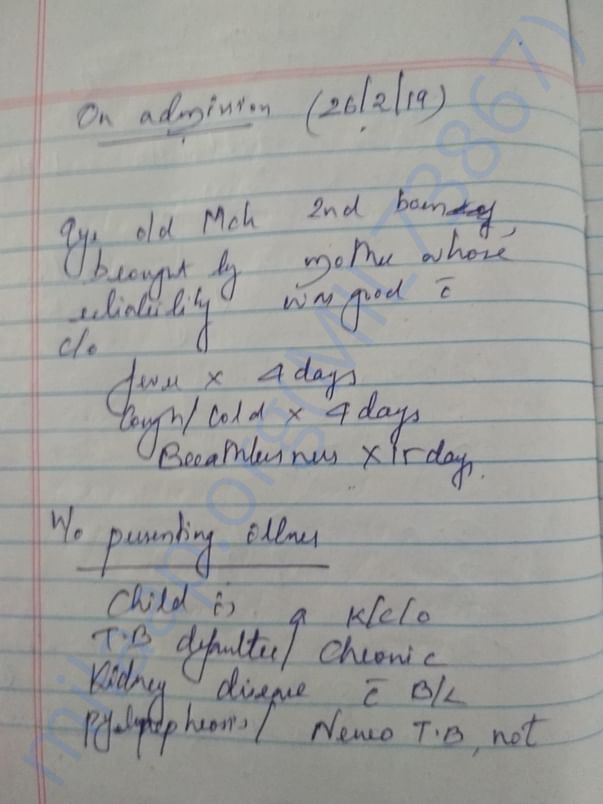 On admission (26/2/19)
9yr old Mch 2nd born
brought by mother whose
reliability was good c̄
c/o
fever x 4 days
Cough/cold x 4 days
Breathlessness x days
H/o presenting illness
Child is a K/c/o
T.B defaulter/ Chronic
Kidney disease c̄ B/L
pyelonephrosis/ Neuro T.B, not
milaap.org(MIL_73867)